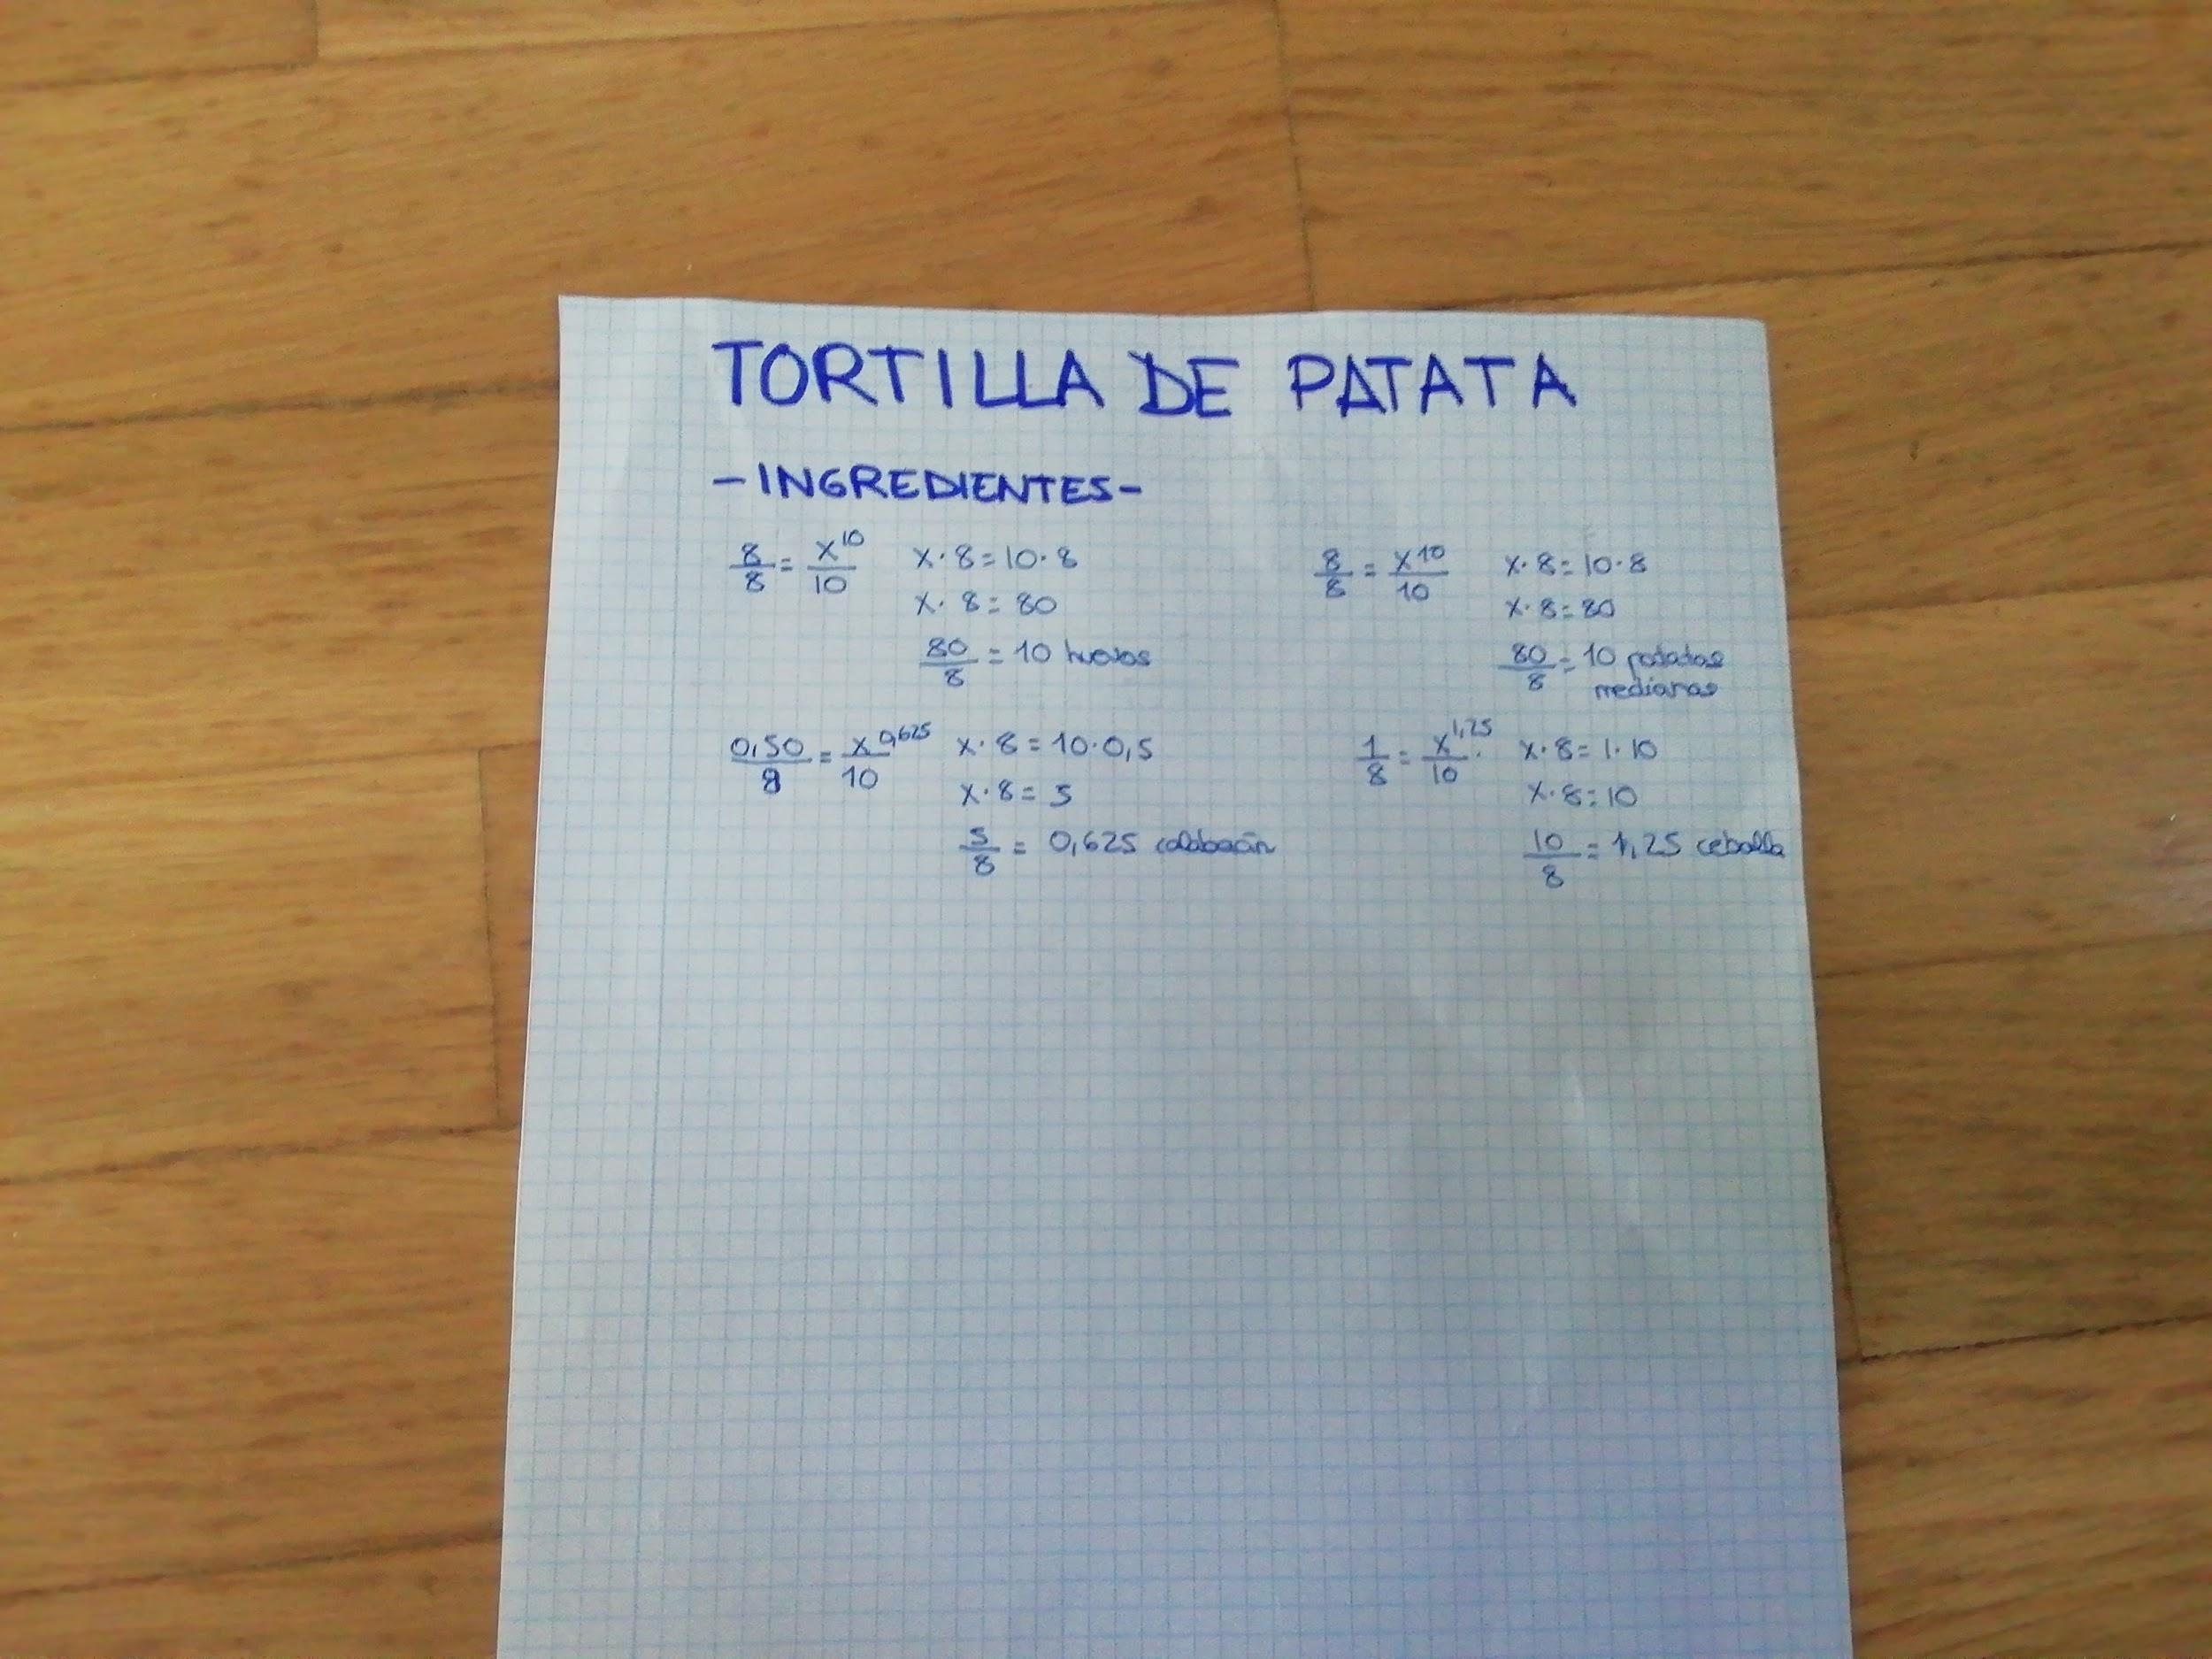 TORTILLA DE PATATA
-INGREDIENTES-
8/8 = x¹⁰/10 x·8=10·8
x·8=80
80/8 = 10 huevos
8/8 = x¹⁰/10 x·8=10·8
x·8=80
80/8 = 10 patatas
medianas
0,50/8 = x^0,625/10 x·8=10·0,5
x·8=5
5/8 = 0,625 calabacín
1/8 = x^1,25/10. x·8=1·10
x·8=10
10/8 = 1,25 cebolla